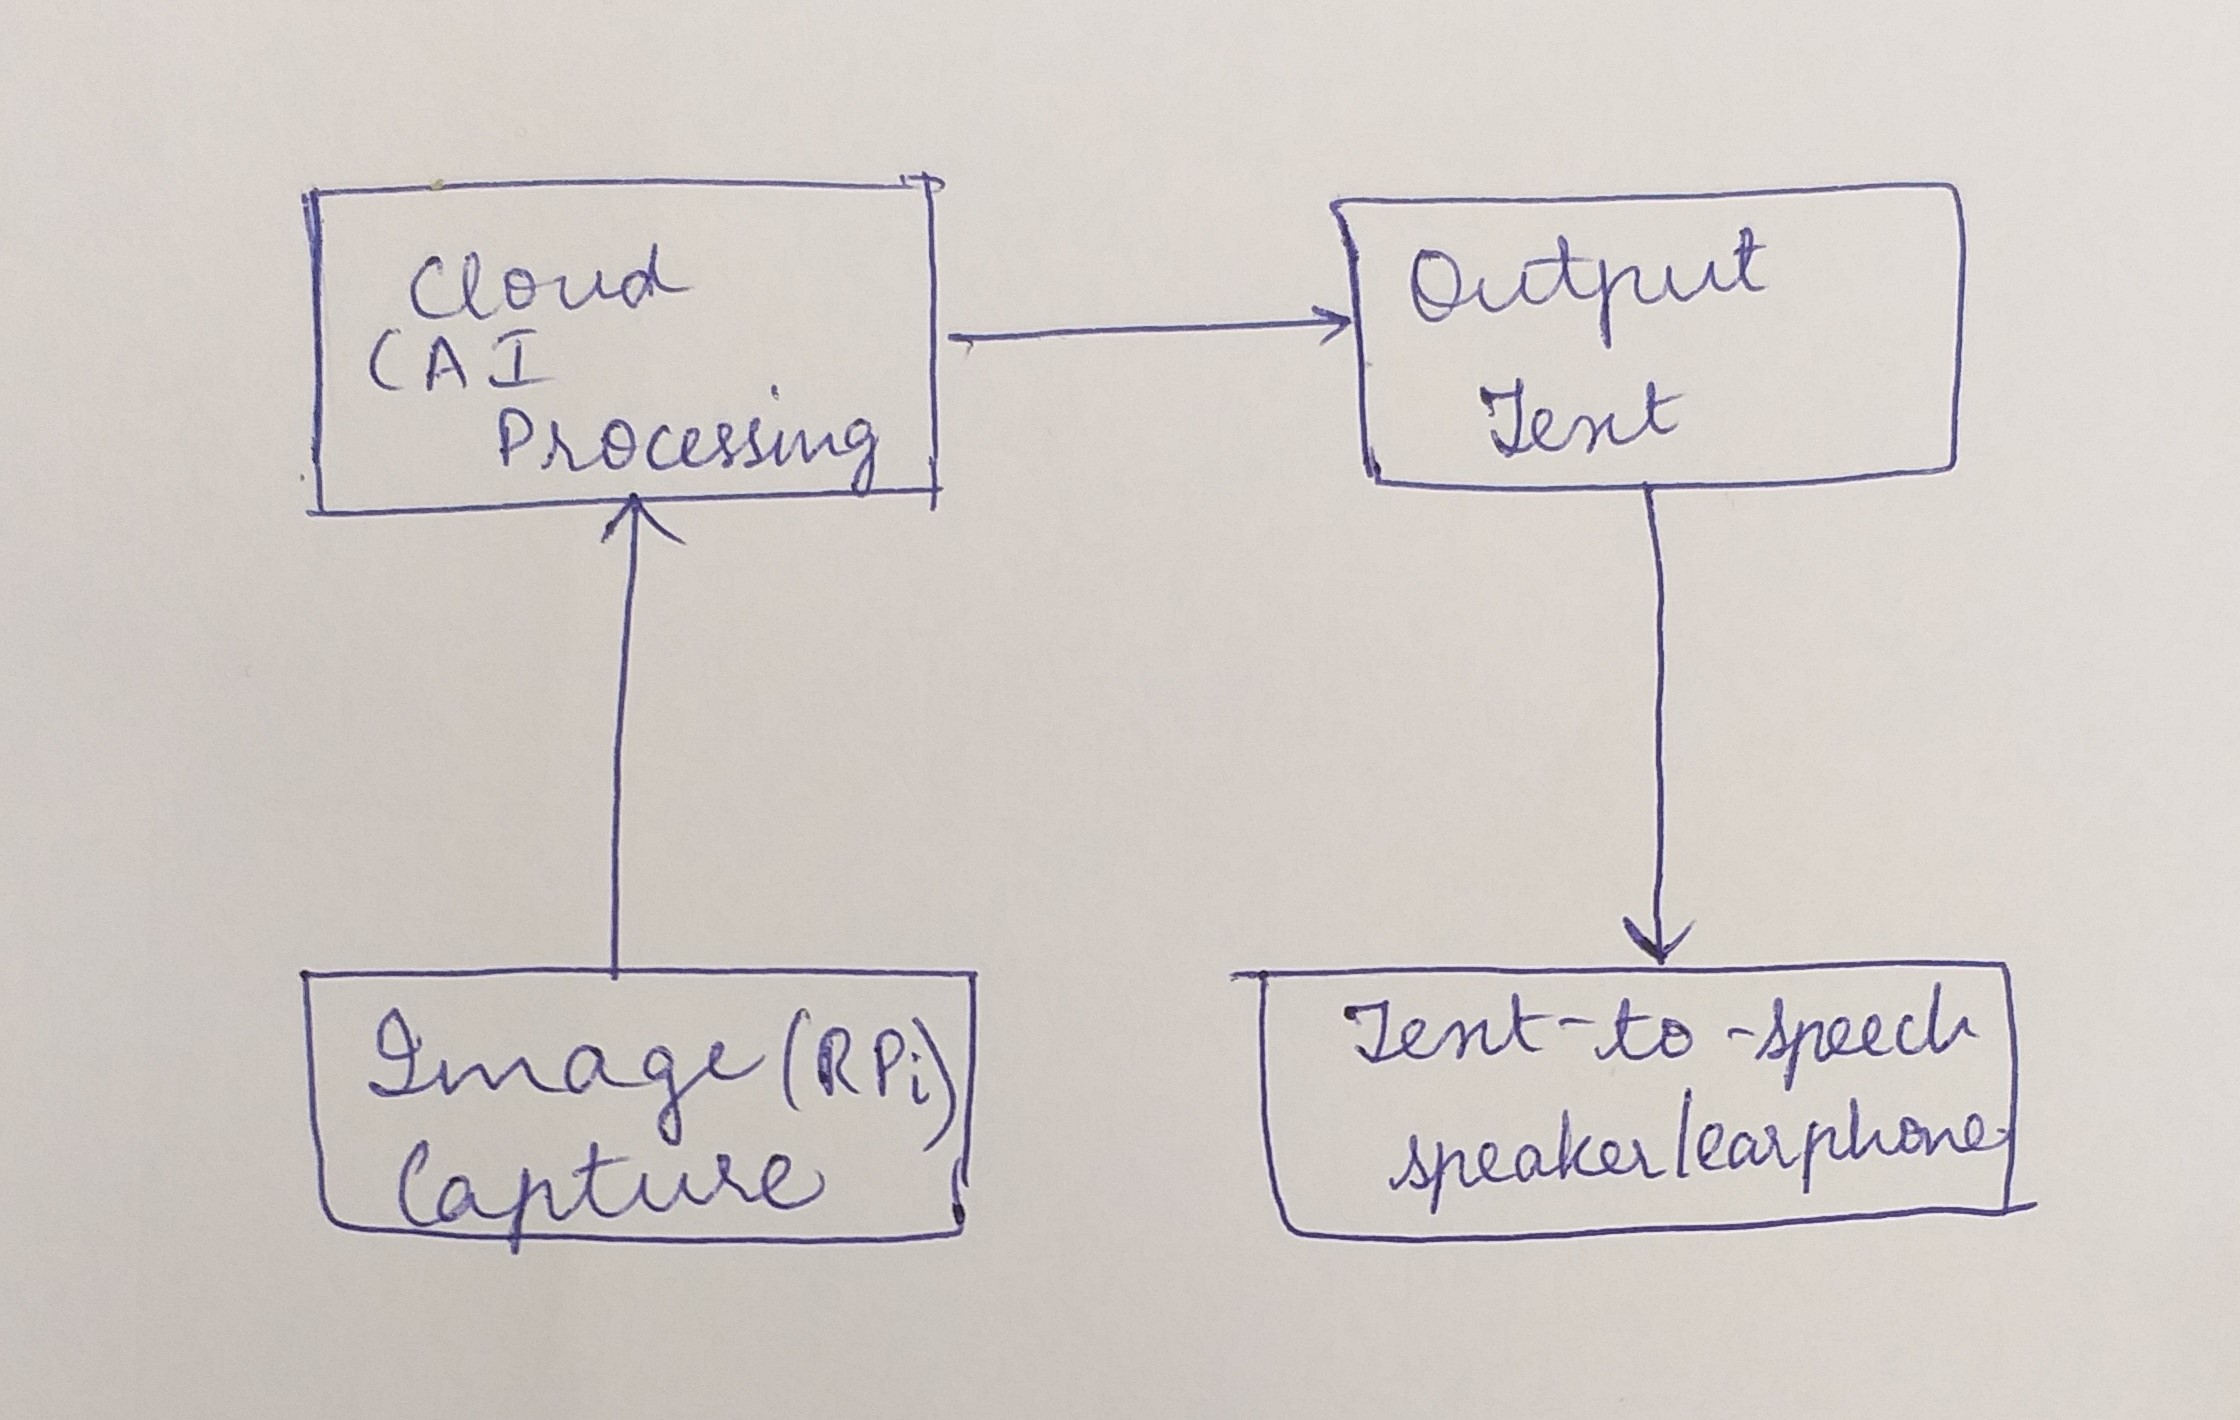 Cloud
(AI
Processing
Output
Text
Image (RPi)
Capture
Text-to-speech
speaker/earphone